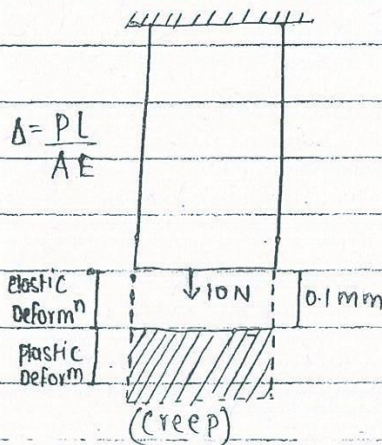 Δ = PL
AE
elastic
Deformⁿ
↓ 10N
0.1mm
plastic
Deform
(creep)